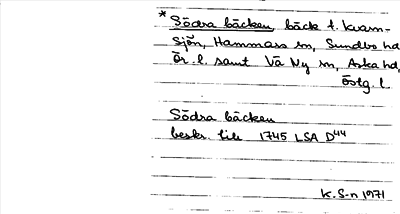 * Södra bäcken, bäck t. Kvarn-
sjön, Hammars sn, Sundbo hd
Ör. l. samt Vä Ny sn, Aska hd,
Östg. l.
Södra bäcken
beskr. till 1745 LSA D44
K. S-n 1971